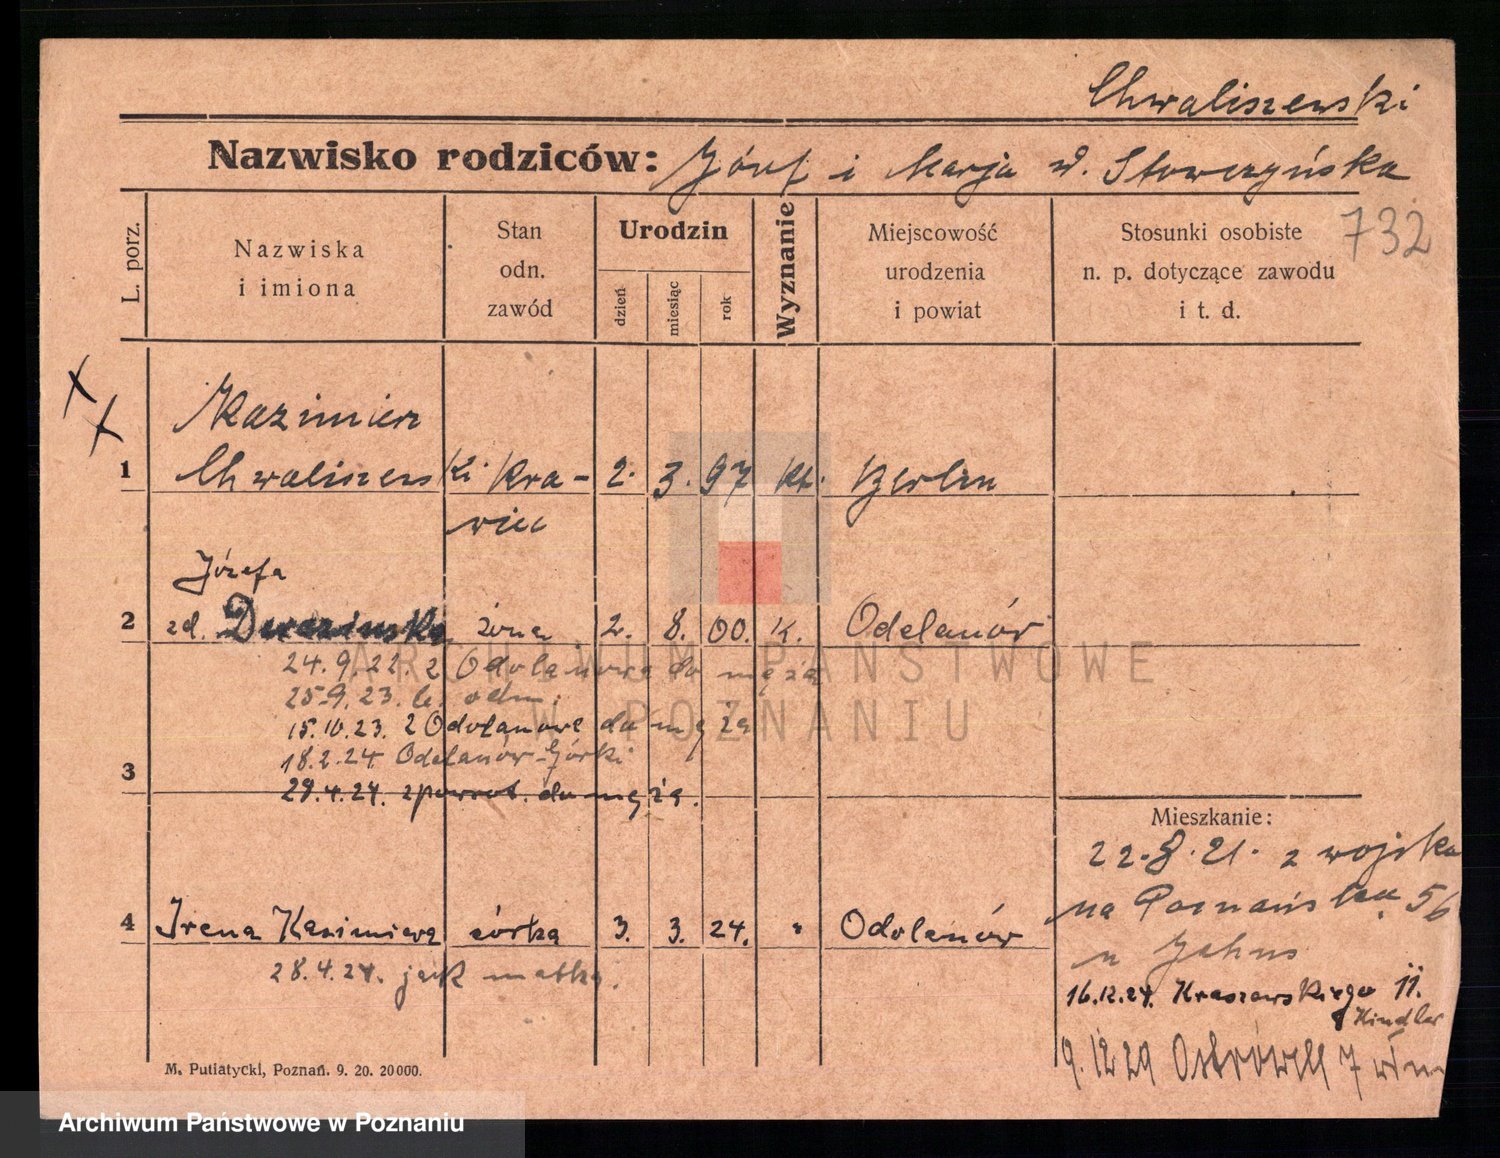 Chwaliszewski
Nazwisko rodziców: Józef i Marja Stowczyńska
732
L. porz.
Nazwiska
i imiona
Stan
odn.
zawód
Urodzin
dzień
miesiąc
rok
Wyznanie
Miejscowość
urodzenia
i powiat
Stosunki osobiste
n. p. dotyczące zawodu
i t. d.
Kazimierz
1 Chwaliszewski Kra- 2. 3. 97 kt. Berlin
wiec
Józefa
2 zd. żona 2. 8. 00. k. Odolanów
24.9.22. z Odolanowa do męża
25.9.23.
15.10.23. z Odolanowa do męża
18.2.24. Odolanów-Górki
3
29.4.24. zpowrot. do męża.
Mieszkanie:
22.8.21. z wojska
na Poznańska 56
u Jahns
4 Irena Kazimiera córka 3. 3. 24. " Odolanów
28.4.24. jak matka.
16.12.24. Kraszewskiego 11.
Kindler
9.12.29 7
M. Putiatycki, Poznań. 9. 20. 20000.
ARCHIWUM PAŃSTWOWE
W POZNANIU
Archiwum Państwowe w Poznaniu